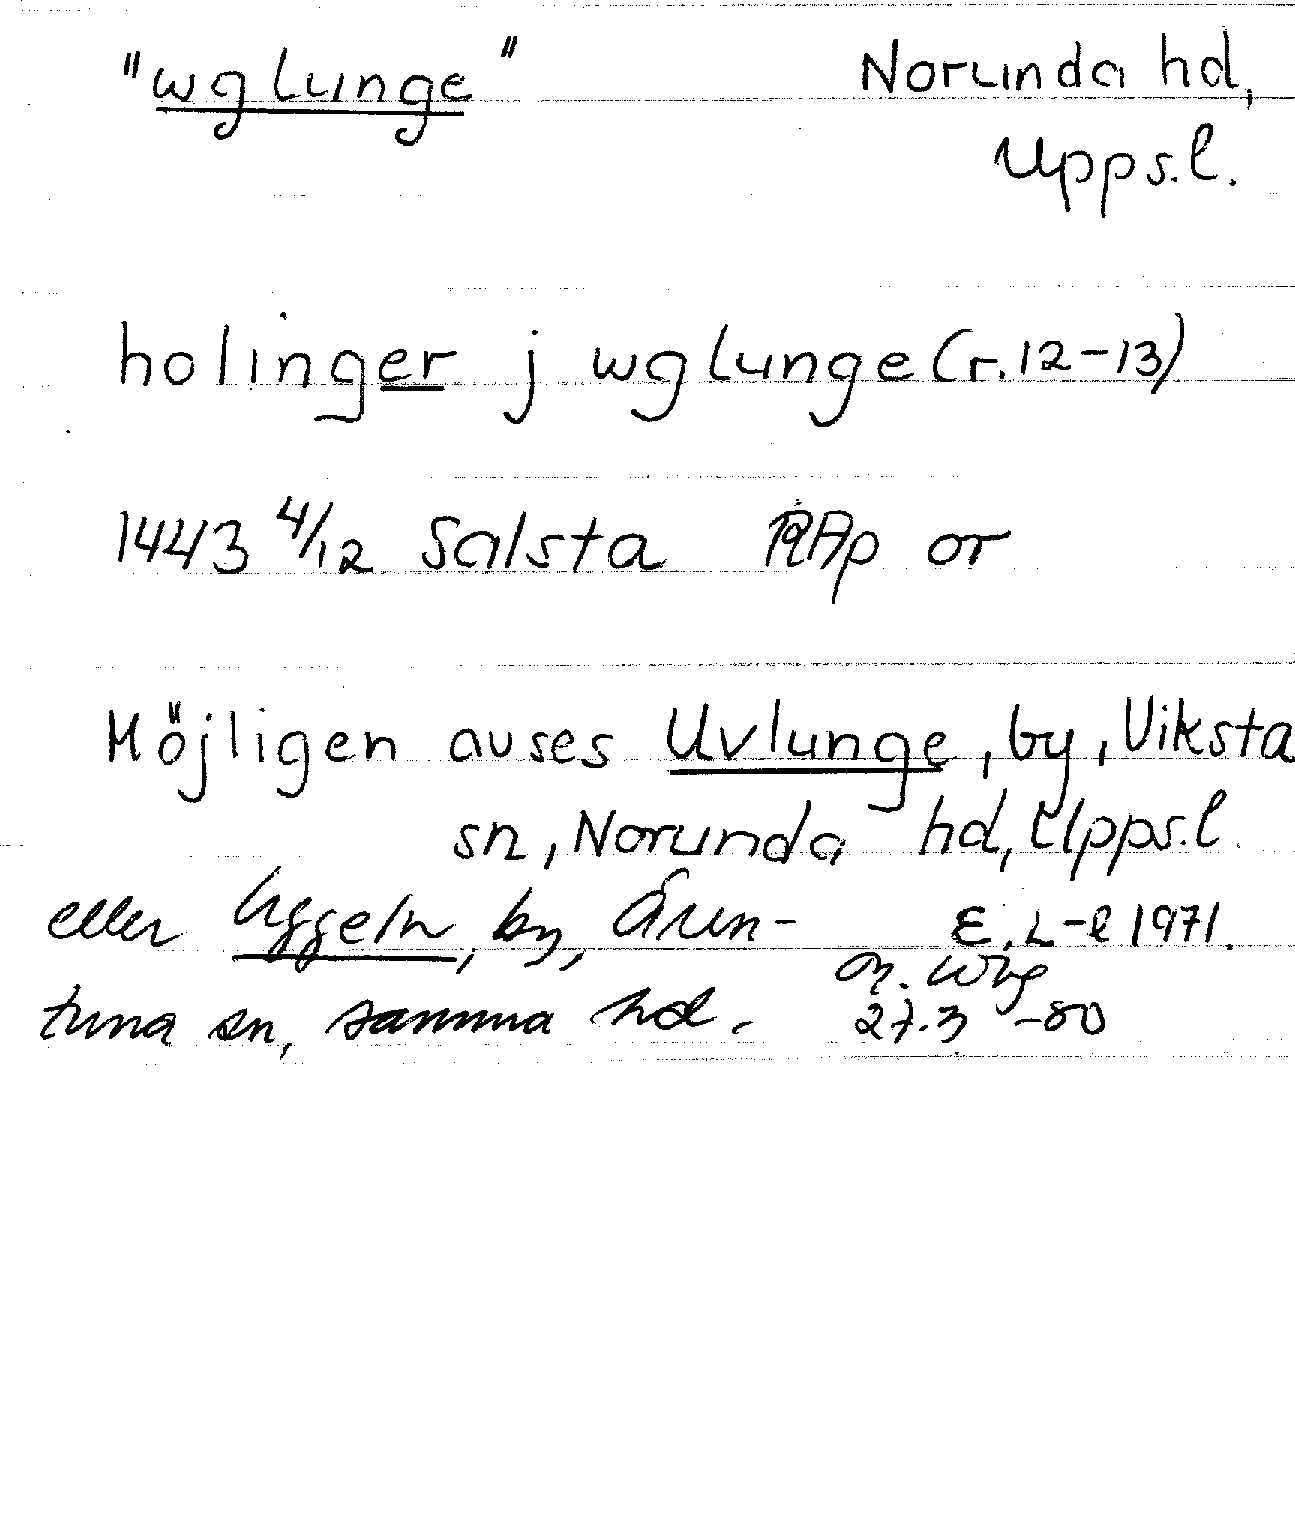 "wglunge" Norunda hd,
Upps.l.
holinger j wglunge (r. 12-13)
1443 4/12 Salsta RAp or
Möjligen avses Uvlunge, by, Viksta
sn, Norunda hd, Upps.l.
eller Uggeln, by, Ären-
tuna sn, samma hd.
E. L-l 1971.
27.3 -80